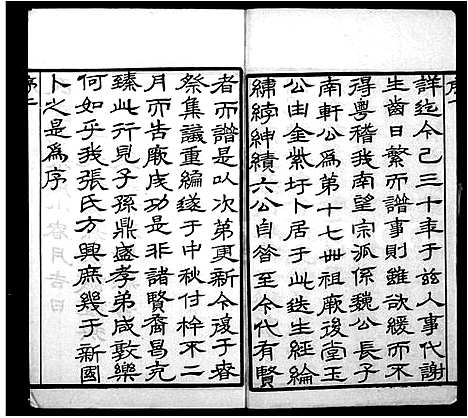 詳迄今已三十年于茲人事代謝
生齒日繁而譜事則雖欲緩而不
得粵稽我南望宗派係魏公長子
南軒公為第十七世祖厥後堂玉
公由金紫圩卜居于此迭生經綸
繡綍紳績六公自答至今代有賢
者而譜是以次第更新今復于春
祭集議重編遂于中秋付梓不二
月而告厥成功是非諸賢裔昌克
臻此行見子孫鼎盛孝弟咸敦樂
何如乎我張氏方興庶幾于新國
卜之是為序
序二